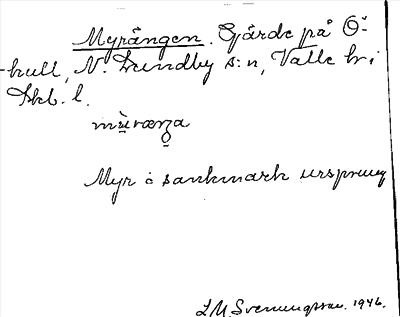 Myrången. Gärde på Ö-
kull, N. Lundby s:n, Valle hr i
Skb. l.
mỳ̤ræŋa
Myr o sankmark ursprung
L M Svenungsson. 1946.